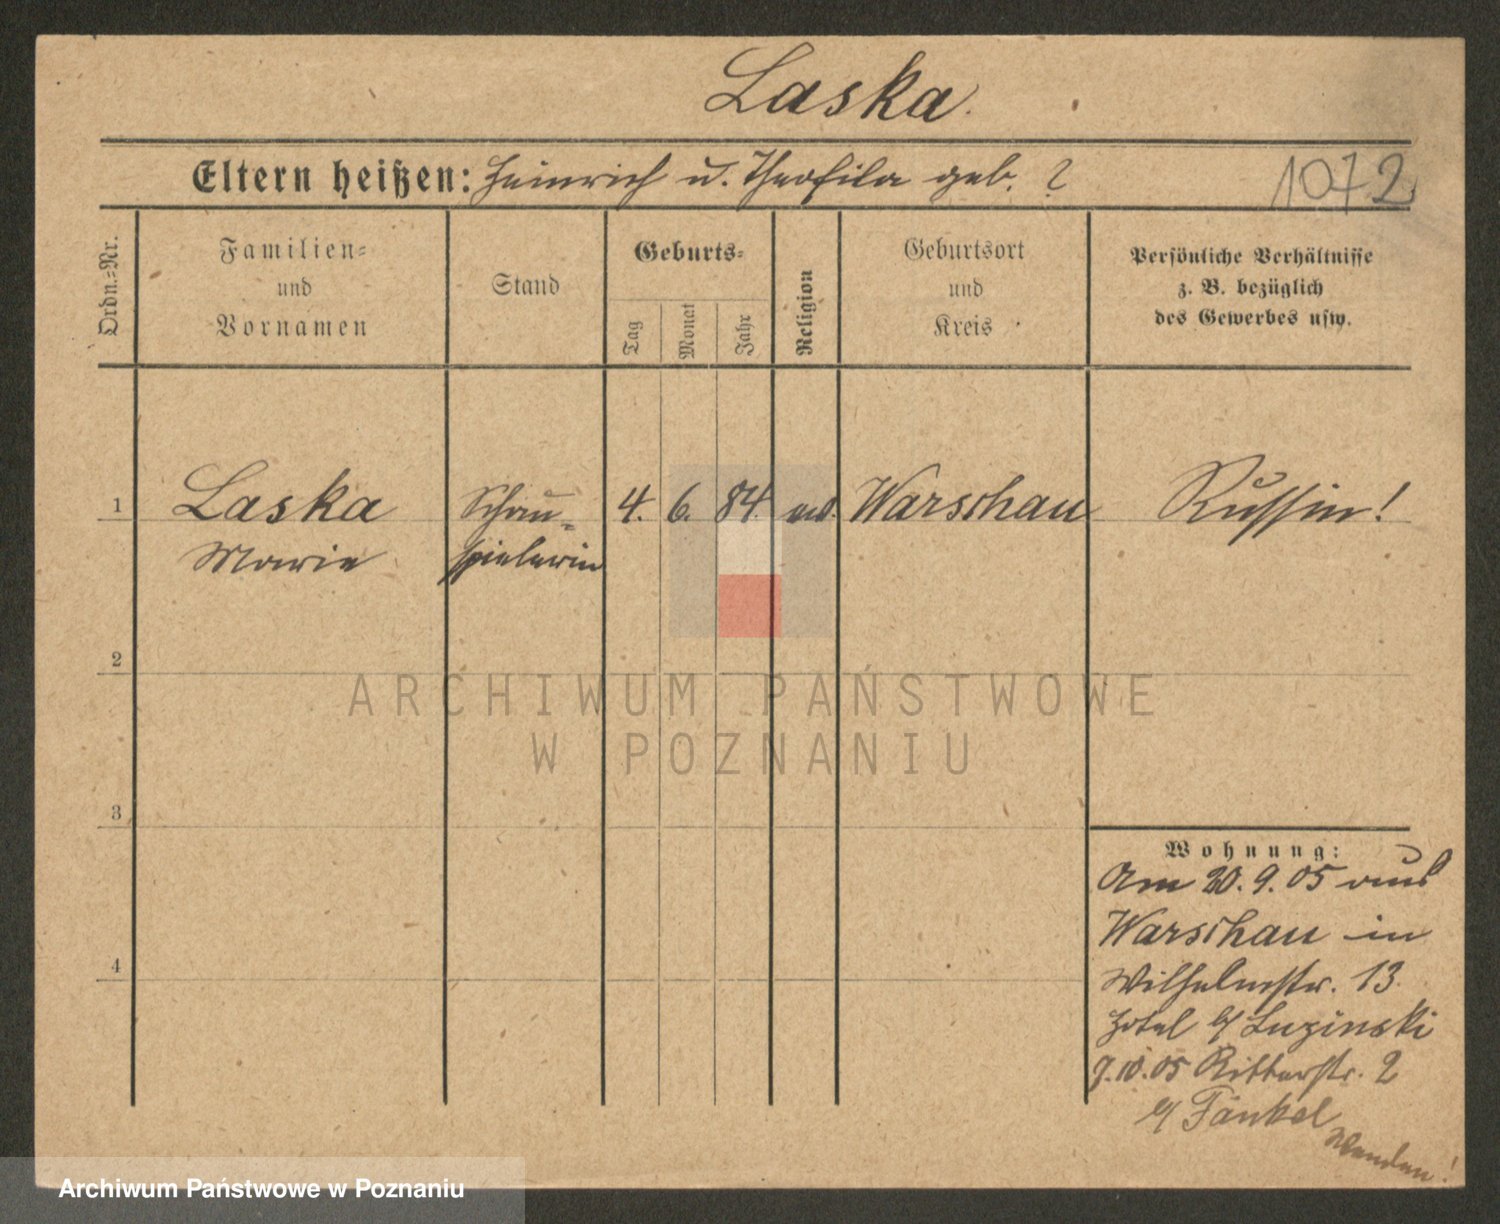 Laska.
Eltern heißen: Heinrich u. Theofila geb. ?
1072
Ordn.-Nr.
Familien-
und
Vornamen
Stand
Geburts-
Tag
Monat
Jahr
Religion
Geburtsort
und
Kreis
Persönliche Verhältnisse
z. B. bezüglich
des Gewerbes usw.
1
Laska
Marie
Schau-
spielerin
4. 6. 84.
Warschau
Russin!
2
3
4
ARCHIWUM PAŃSTWOWE
W POZNANIU
Wohnung:
Am 20. 9. 05 aus
Warschau in
Wilhelmstr. 13
Hotel b/ Luzinski
7.10.05 Ritterstr. 2
b/ Fänkel
Wenden!
Archiwum Państwowe w Poznaniu